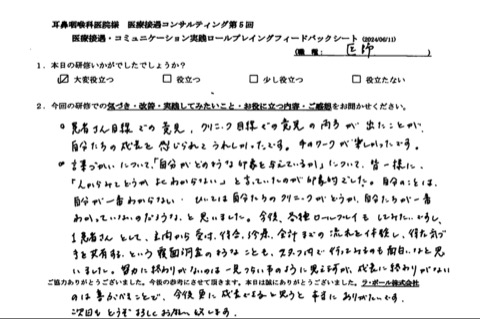 耳鼻咽喉科医院様　医療接遇コンサルティング第５回
医療接遇・コミュニケーション実践ロールプレイングフィードバックシート（2024/06/11）
（職 種： 医師 ）
１．本日の研修いかがでしたでしょうか？
☑ 大変役立つ　□ 役立つ　□ 少し役立つ　□ 役立たない
２．今回の研修での気づき・改善・実践してみたいこと・お役に立つ内容・ご感想をお聞かせください。
○患者さん目線での意見、クリニック目線での意見の両方が出たことが、
自分たちの成長を感じられてうれしかったです。 ワークが楽しかったです。
○言葉づかいについて、「自分がどのような印象を与えているか」について、皆一様に、
「人からみてどうか はわからない」と言っていたのが印象的でした。自分のことは、
自分が一番わからない・ひいては自分たちのクリニックがどうか、自分たちが一番
わかっていないのだろうな、と思いました。今後、 ロールプレイもしてみたいですし、
患者さんとして、 から受付、待合、診療、会計までの流れを体験し、 気づ
きを共有する、という覆面調査のようなことも、スタッフ内で行ってみるのも面白いなと思
いました。努力に終わりがないのは一見つらい のように見えますが、成長に終わりがない
ご協力ありがとうございました。今後の参考にさせて頂きます。本日は誠にありがとうございました。ラ・ポール株式会社
のは 今後更に成長できると思うと本当にありがたいです。
次回もどうぞよろしくお願い致します。